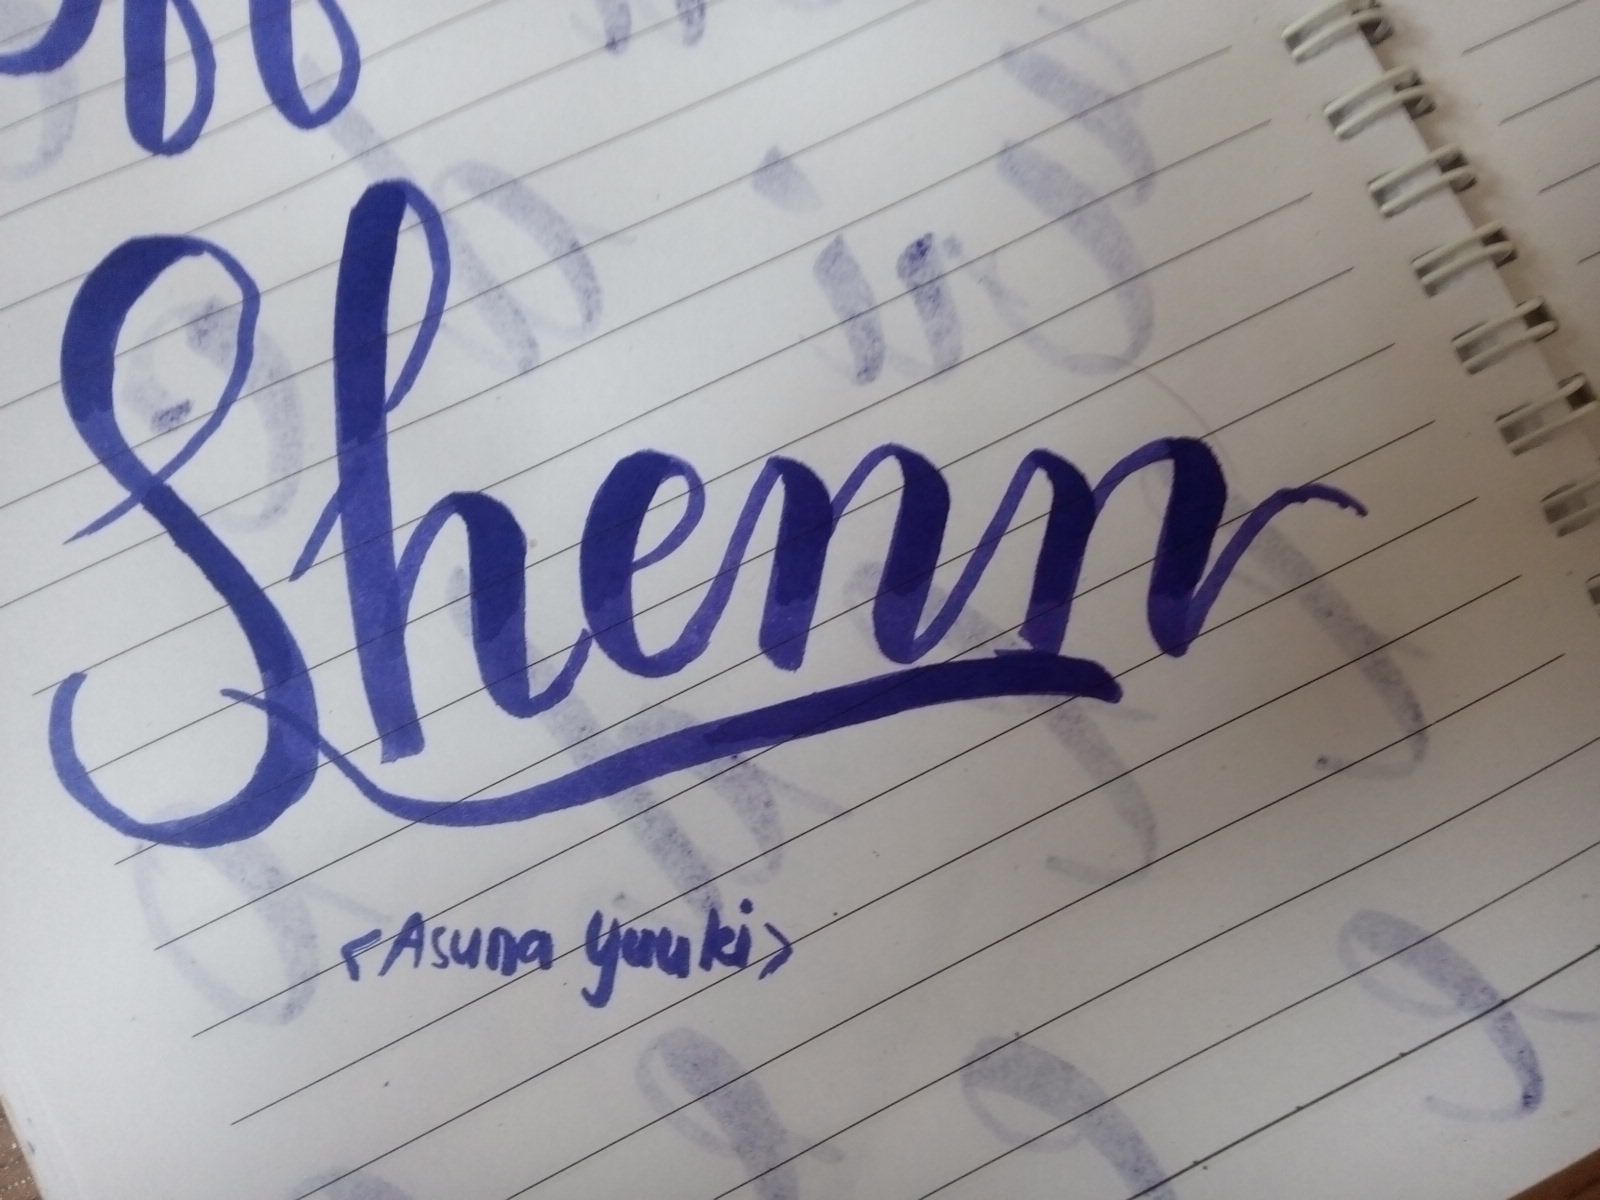 Shenn
<Asuna Yuuki>